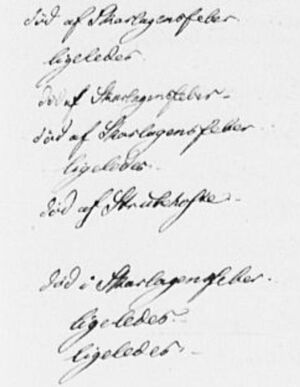 död af Skarlagensfeber
ligeledes
död af Skarlagensfeber
död af Skarlagensfeber
ligeledes
död af Strubehoste
död i Skarlagensfeber
ligeledes
ligeledes